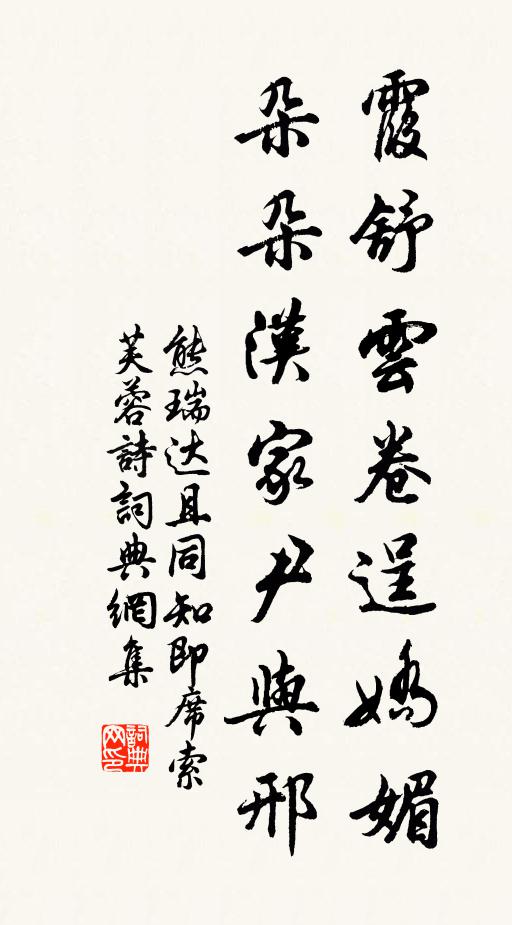 霞舒雲卷逞嬌媚
朵朵漢家尹與邢
熊瑞达且同知即席索
芙蓉詩詞典網集
詞典网印